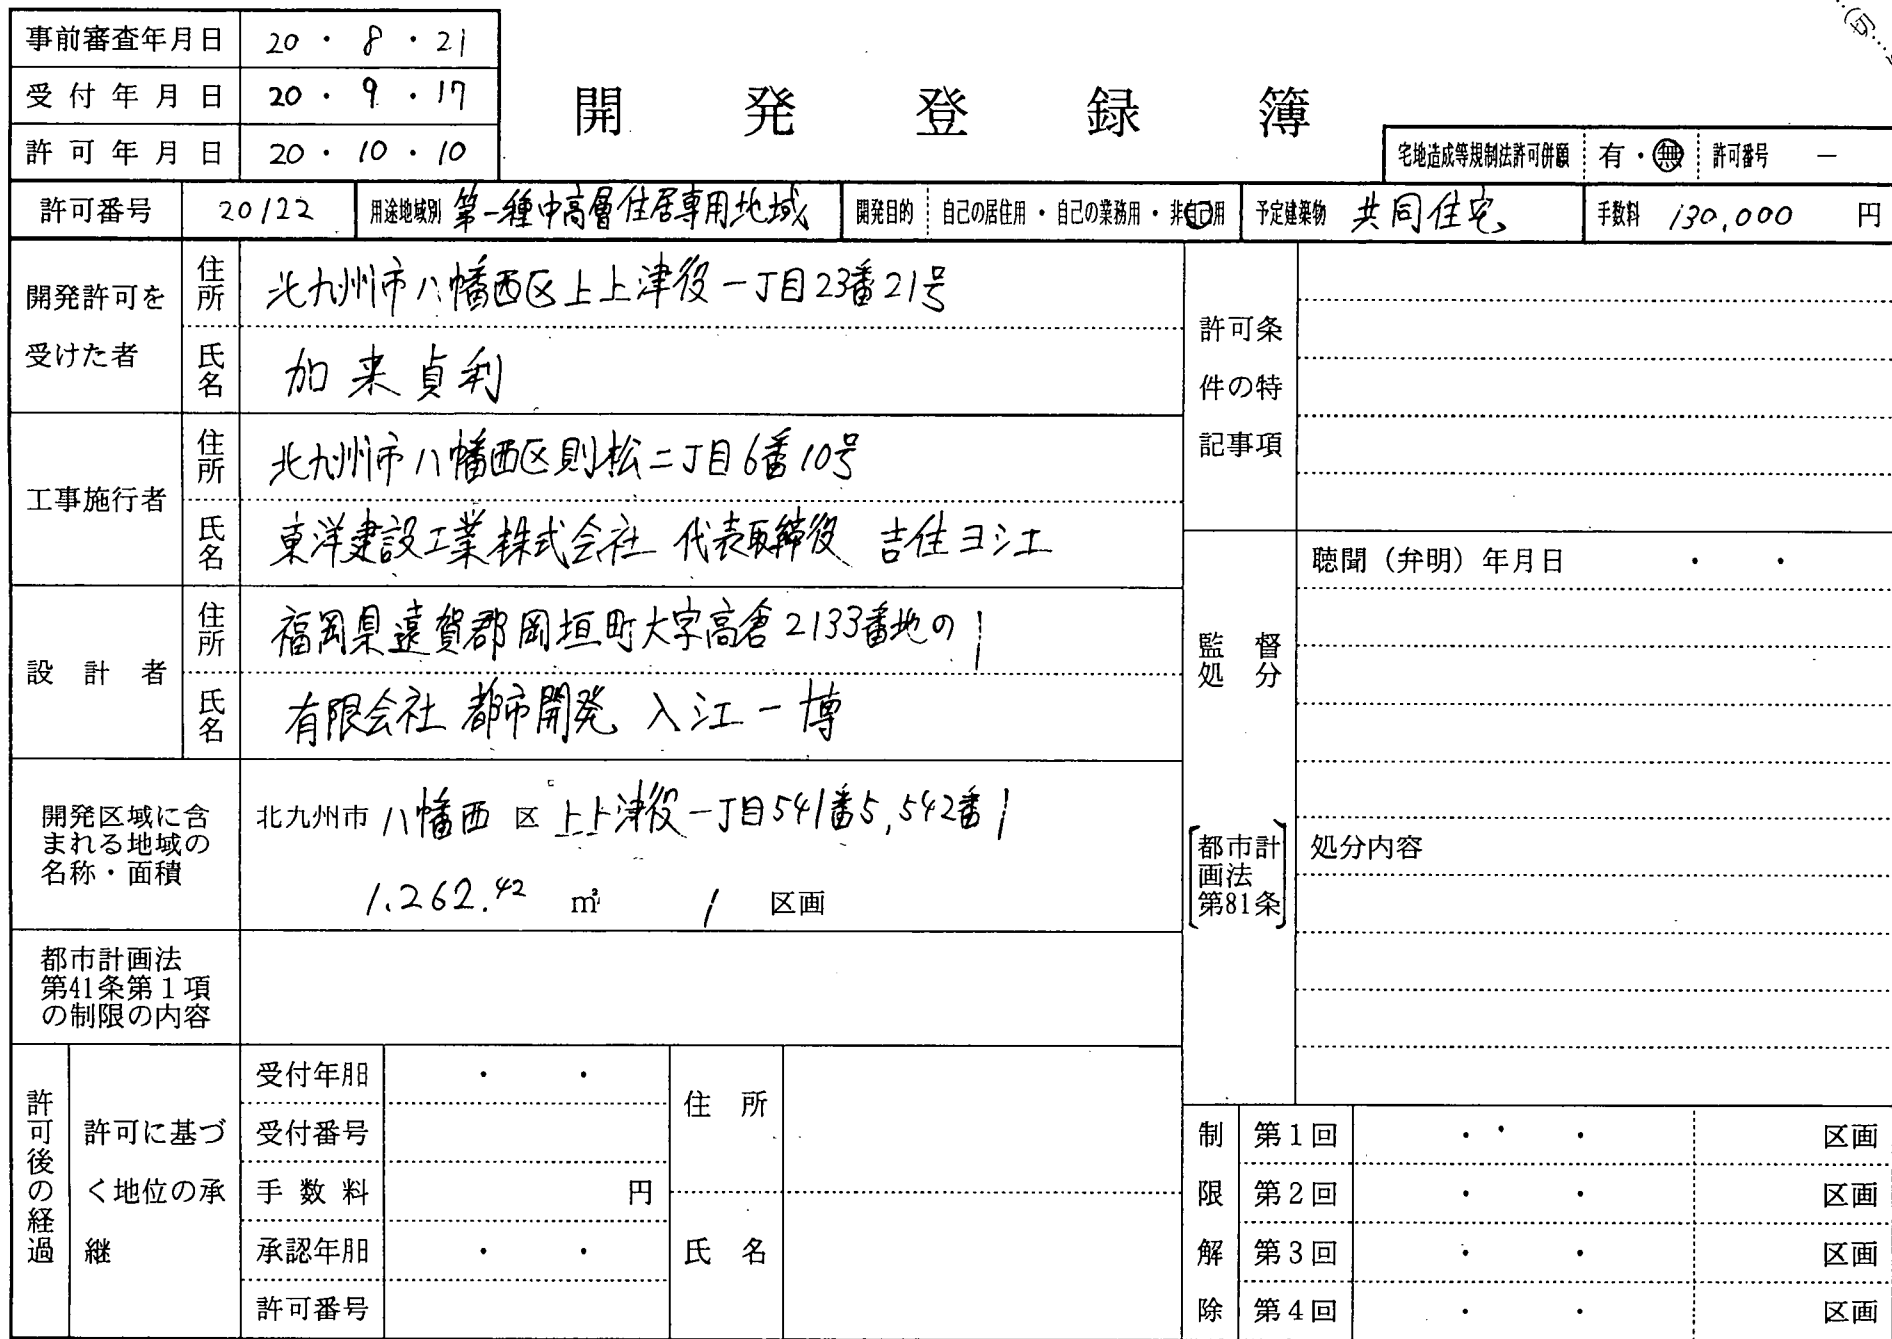 事前審査年月日 20・8・21
受付年月日 20・9・17
許可年月日 20・10・10
開発登録簿
宅地造成等規制法許可併願 有・無 許可番号 ー
許可番号 20122 用途地域別 第一種中高層住居専用地域 開発目的 自己の居住用・自己の業務用・非自己用 予定建築物 共同住宅 手数料 130,000 円
開発許可を受けた者
住所 北九州市八幡西区上上津役一丁目23番21号
氏名 加来貞利
工事施行者
住所 北九州市八幡西区則松二丁目6番10号
氏名 東洋建設工業株式会社 代表取締役 吉住ヨシエ
設計者
住所 福岡県遠賀郡岡垣町大字高倉2133番地の1
氏名 有限会社 都市開発 入江一博
開発区域に含
まれる地域の
名称・面積
北九州市 八幡西 区 上上津役一丁目541番5,542番1
1.262.42 ㎡ 1 区画
都市計画法
第41条第1項
の制限の内容
許可後の経過
許可に基づ
く地位の承
継
受付年月日 ・ ・
受付番号
手数料 円
承認年月日 ・ ・
許可番号
住所
氏名
許可条
件の特
記事項
監督
処分
都市計
画法
第81条
聴聞(弁明)年月日 ・ ・
処分内容
制限解除
第1回 ・ ・ 区画
第2回 ・ ・ 区画
第3回 ・ ・ 区画
第4回 ・ ・ 区画